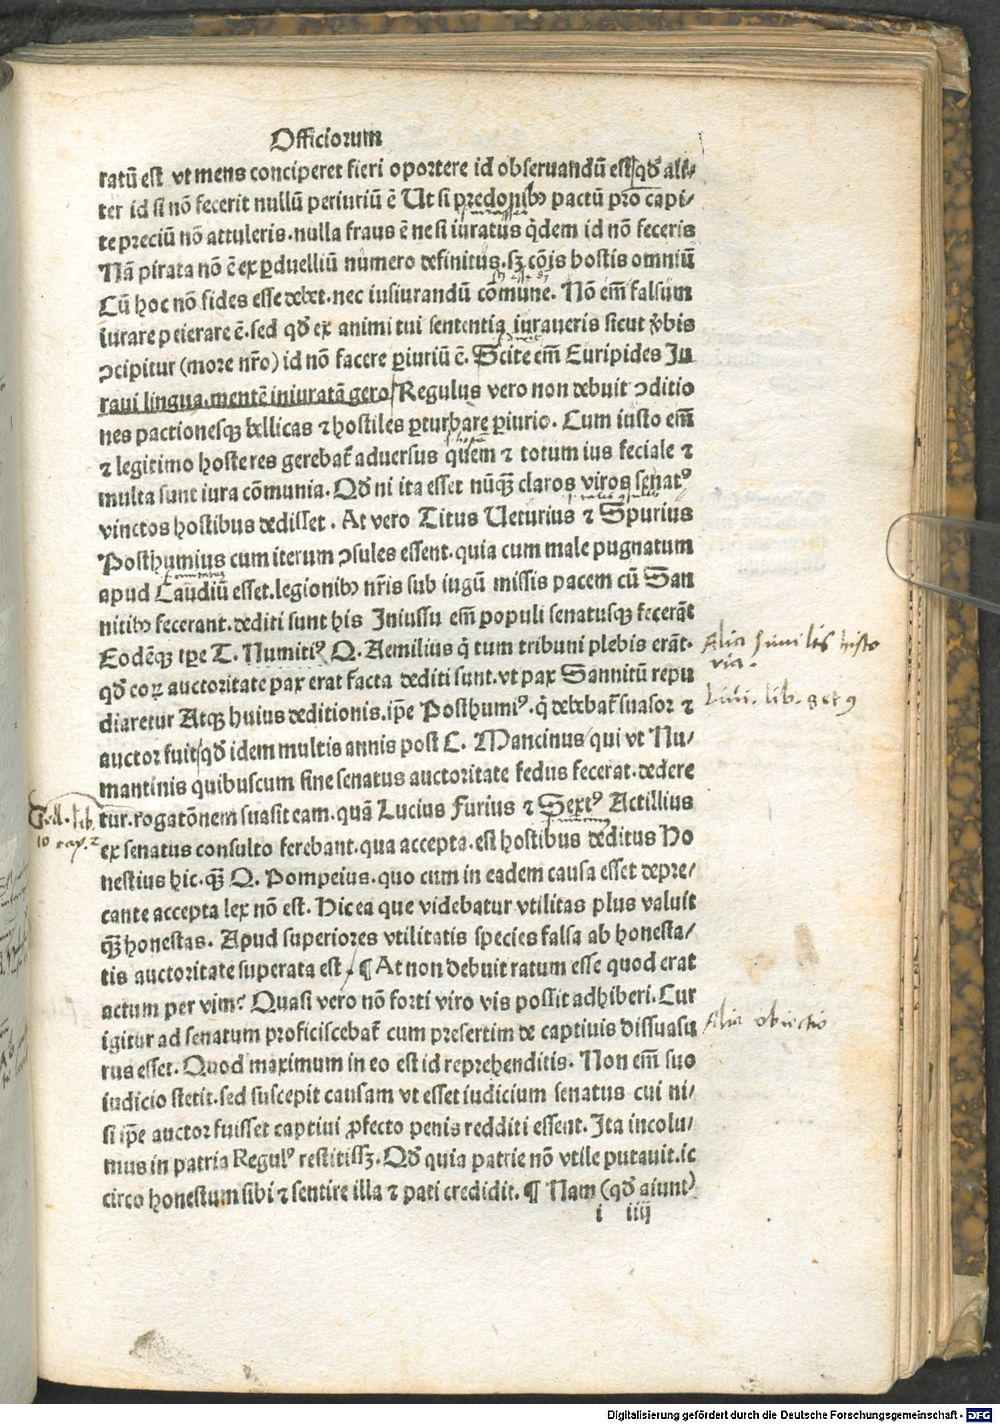 Officiorum
ratū est vt mens conciperet fieri oportere id obseruandū est/qđ ali-
ter id si nō fecerit nullū periuriū ē Ut si predonibꝰ pactū pro capi-
te preciū nō attuleris.nulla fraus ē ne si iuratus q̇dem id nō feceris
Nā pirata nō ē ex ꝑduelliū numero definitus.sꝫ cōīs hostis omniū
Cū hoc nō fides esse debet.nec iusiurandū cōmune. Nō em̄ falsum
iurare peierare ē.sed qđ ex animi tui sententia iuraueris sicut v̄bis
ↄcipitur (more nr̄o) id nō facere ꝑiuriū ē. Scite em̄ Euripides Ju
raui lingua.mentē iniuratā gero/Regulus vero non debuit ↄditio
nes pactionesqꝫ bellicas ⁊ hostiles ꝑturbare ꝑiurio. Cum iusto em̄
⁊ legitimo hoste res gerebat̄ aduersus quem ⁊ totum ius feciale ⁊
multa sunt iura cōmunia. Qđ ni ita esset nūqꝫ claros viros senatꝰ
vinctos hostibus dedisset. At vero Titus Ueturius ⁊ Spurius
Posthumius cum iterum ↄsules essent.quia cum male pugnatum
apud Caudiū esset.legionibꝰ nr̄is sub iugū missis pacem cū San
nitibꝰ fecerant.dediti sunt his Iniussu em̄ populi senatusqꝫ fecerāt
Eodēqꝫ tꝑe T. Numitiꝰ Q. Aemilius q̇ tum tribuni plebis erāt.
qđ eoꝝ auctoritate pax erat facta dediti sunt.vt pax Sannitū repu
diaretur Atqꝫ huius deditionis.ip̄e Posthumiꝰ.q̇ dedebat̄ suasor ⁊
auctor fuit/qđ idem multis annis post C. Mancinus/qui vt Nu-
mantinis quibuscum sine senatus auctoritate fedus fecerat.dedere
tur.rogatōnem suasit eam.quā Lucius Furius ⁊ Sextꝰ Actillius
ex senatus consulto ferebant.qua accepta.est hostibus deditus Ho
nestius hic.qꝫ Q. Pompeius.quo cum in eadem causa esset depre-
cante accepta lex nō est. Hic ea que videbatur vtilitas plus valuit
qꝫ honestas. Apud superiores vtilitatis species falsa ab honesta-
tis auctoritate superata est. ¶ At non debuit ratum esse quod erat
actum per vim? Quasi vero nō forti viro vis possit adhiberi. Cur
igitur ad senatum proficiscebat̄ cum presertim de captiuis dissuasu
rus esset. Quod maximum in eo est id reprehenditis. Non em̄ suo
iudicio stetit.sed suscepit causam vt esset iudicium senatus cui ni-
si ip̄e auctor fuisset captiui ꝓfecto penis redditi essent. Ita incolu-
mus in patria Regulꝰ restitissꝫ. Qđ quia patrie nō vtile putauit.ic
circo honestum sibi ⁊ sentire illa ⁊ pati credidit. ¶ Nam (qđ aiunt)
i iiij
Alia similis histo
ria.
Liui. lib. 8 et 9
lib.
10 cap. 2
Alia obiectio
Digitalisierung gefördert durch die Deutsche Forschungsgemeinschaft - DFG